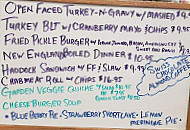 Open Faced Turkey-N-Gravy w/ Mashed $
Turkey BLT w/ Cranberry Mayo + Chips $9.95
Fried Pickle Burger w/ American Cheese
New England Boiled Dinner $10.95
Haddock Sandwich w/ FF / Slaw $9.95
Crabmeat Roll w/ Chips $16.95
Swiss Chocolate Almond Coffee
Garden Veggie Quiche w/
Cheeseburger Soup
Blueberry Pie - Strawberry Shortcake - Lemon
Meringue Pie -